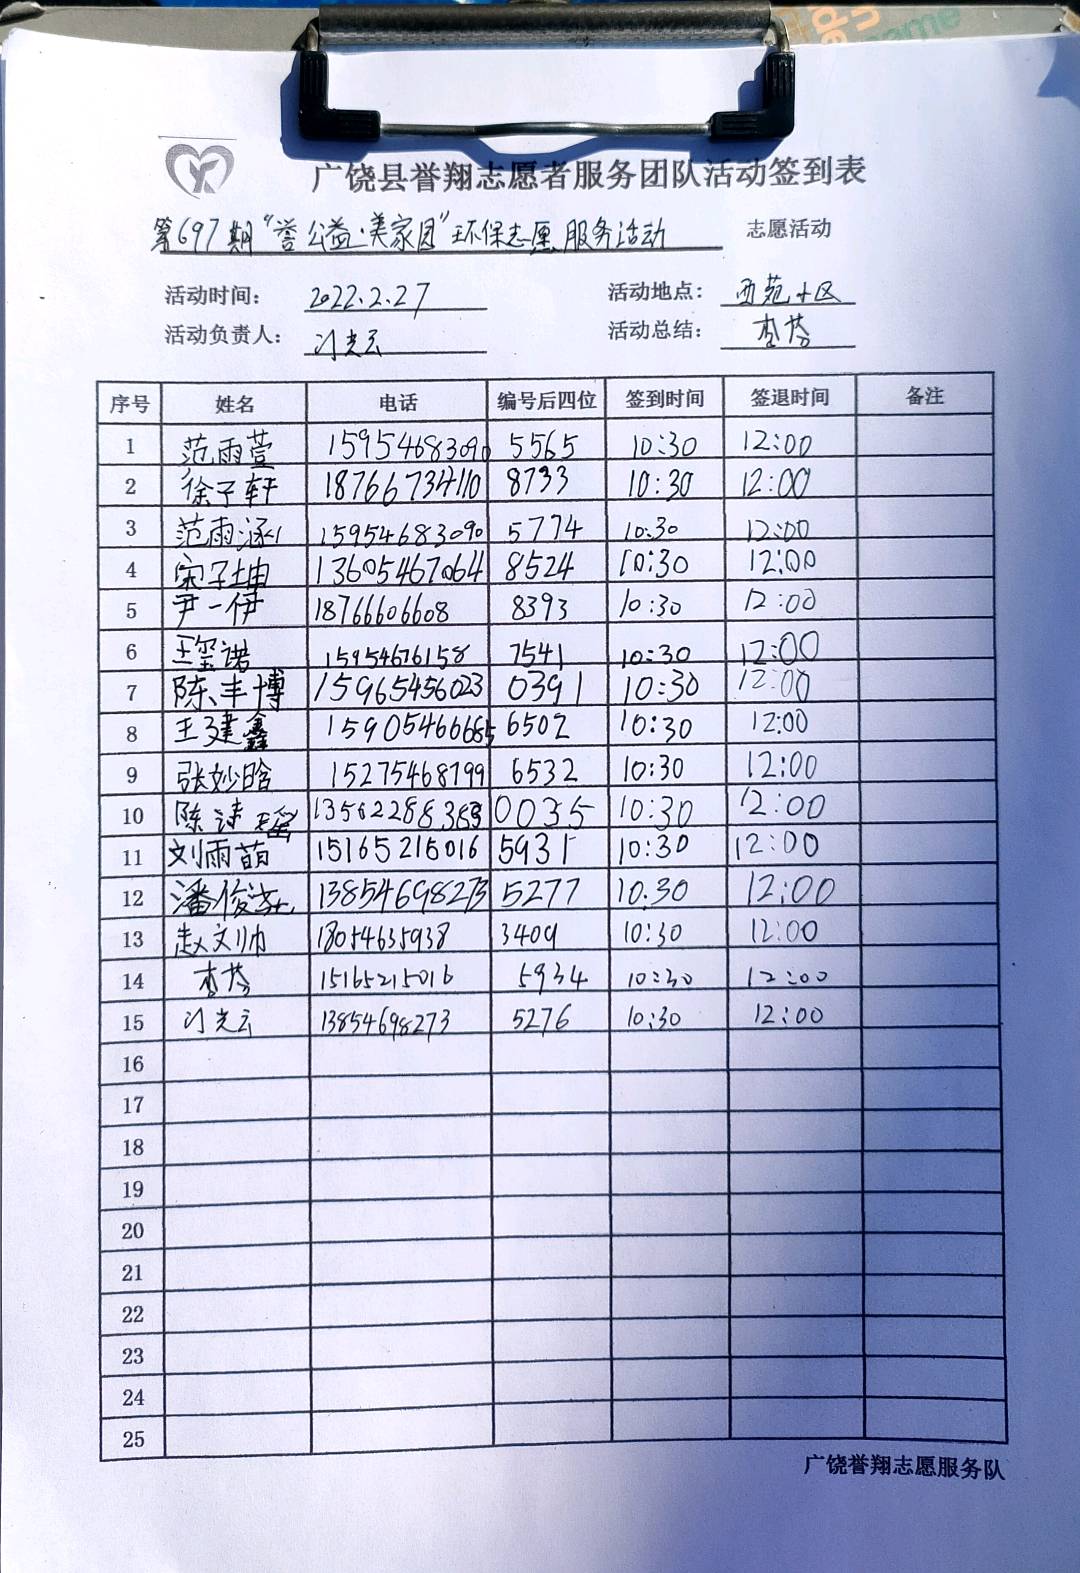 广饶县誉翔志愿者服务团队活动签到表
第697期“誉公益·美家园”环保志愿服务活动 志愿活动
活动时间: 2022.2.27 活动地点: 西苑小区
活动负责人: 冯光云 活动总结: 李芬
序号 姓名 电话 编号后四位 签到时间 签退时间 备注
1 范雨萱 15954683090 5565 10:30 12:00
2 徐子轩 18766734110 8733 10:30 12:00
3 范雨涵 15954683090 5774 10:30 12:00
4 宋子坤 13605467064 8524 10:30 12:00
5 尹一伊 18766606608 8393 10:30 12:00
6 王玺诺 15954676158 7541 10:30 12:00
7 陈丰博 15965456023 0391 10:30 12:00
8 王建鑫 15905466665 6502 10:30 12:00
9 张妙晗 15275468799 6532 10:30 12:00
10 陈诗瑶 0035 10:30 12:00
11 刘雨萌 15165215016 5931 10:30 12:00
12 潘俊 13854698273 5277 10:30 12:00
13 赵文帅 18054635938 3409 10:30 12:00
14 李芬 15165215016 5934 10:30 12:00
15 冯光云 13854698273 5276 10:30 12:00
16
17
18
19
20
21
22
23
24
25
广饶誉翔志愿服务队